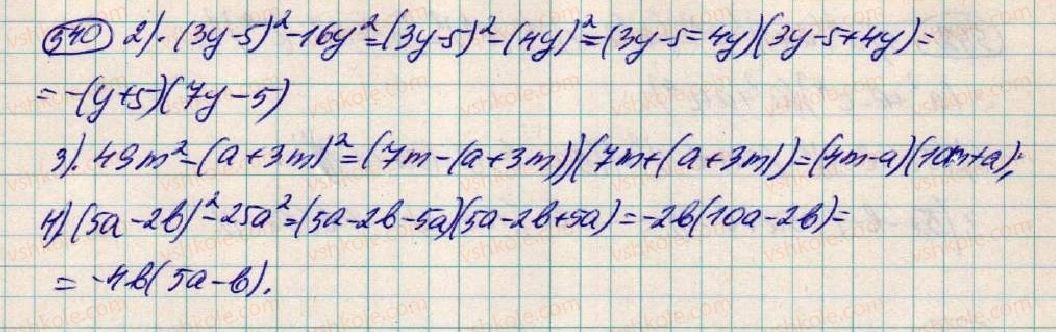 540 2). (3y-5)²-16y²=(3y-5)²-(4y)²=(3y-5=4y)(3y-5+4y)=
=-(y+5)(7y-5)
3). 49m²-(a+3m)²=(7m-(a+3m))(7m+(a+3m))=(4m-a)(10m+a);
4) (5a-2b)²-25a²=(5a-2b-5a)(5a-2b+5a)=-2b(10a-2b)=
=-4b(5a-b).